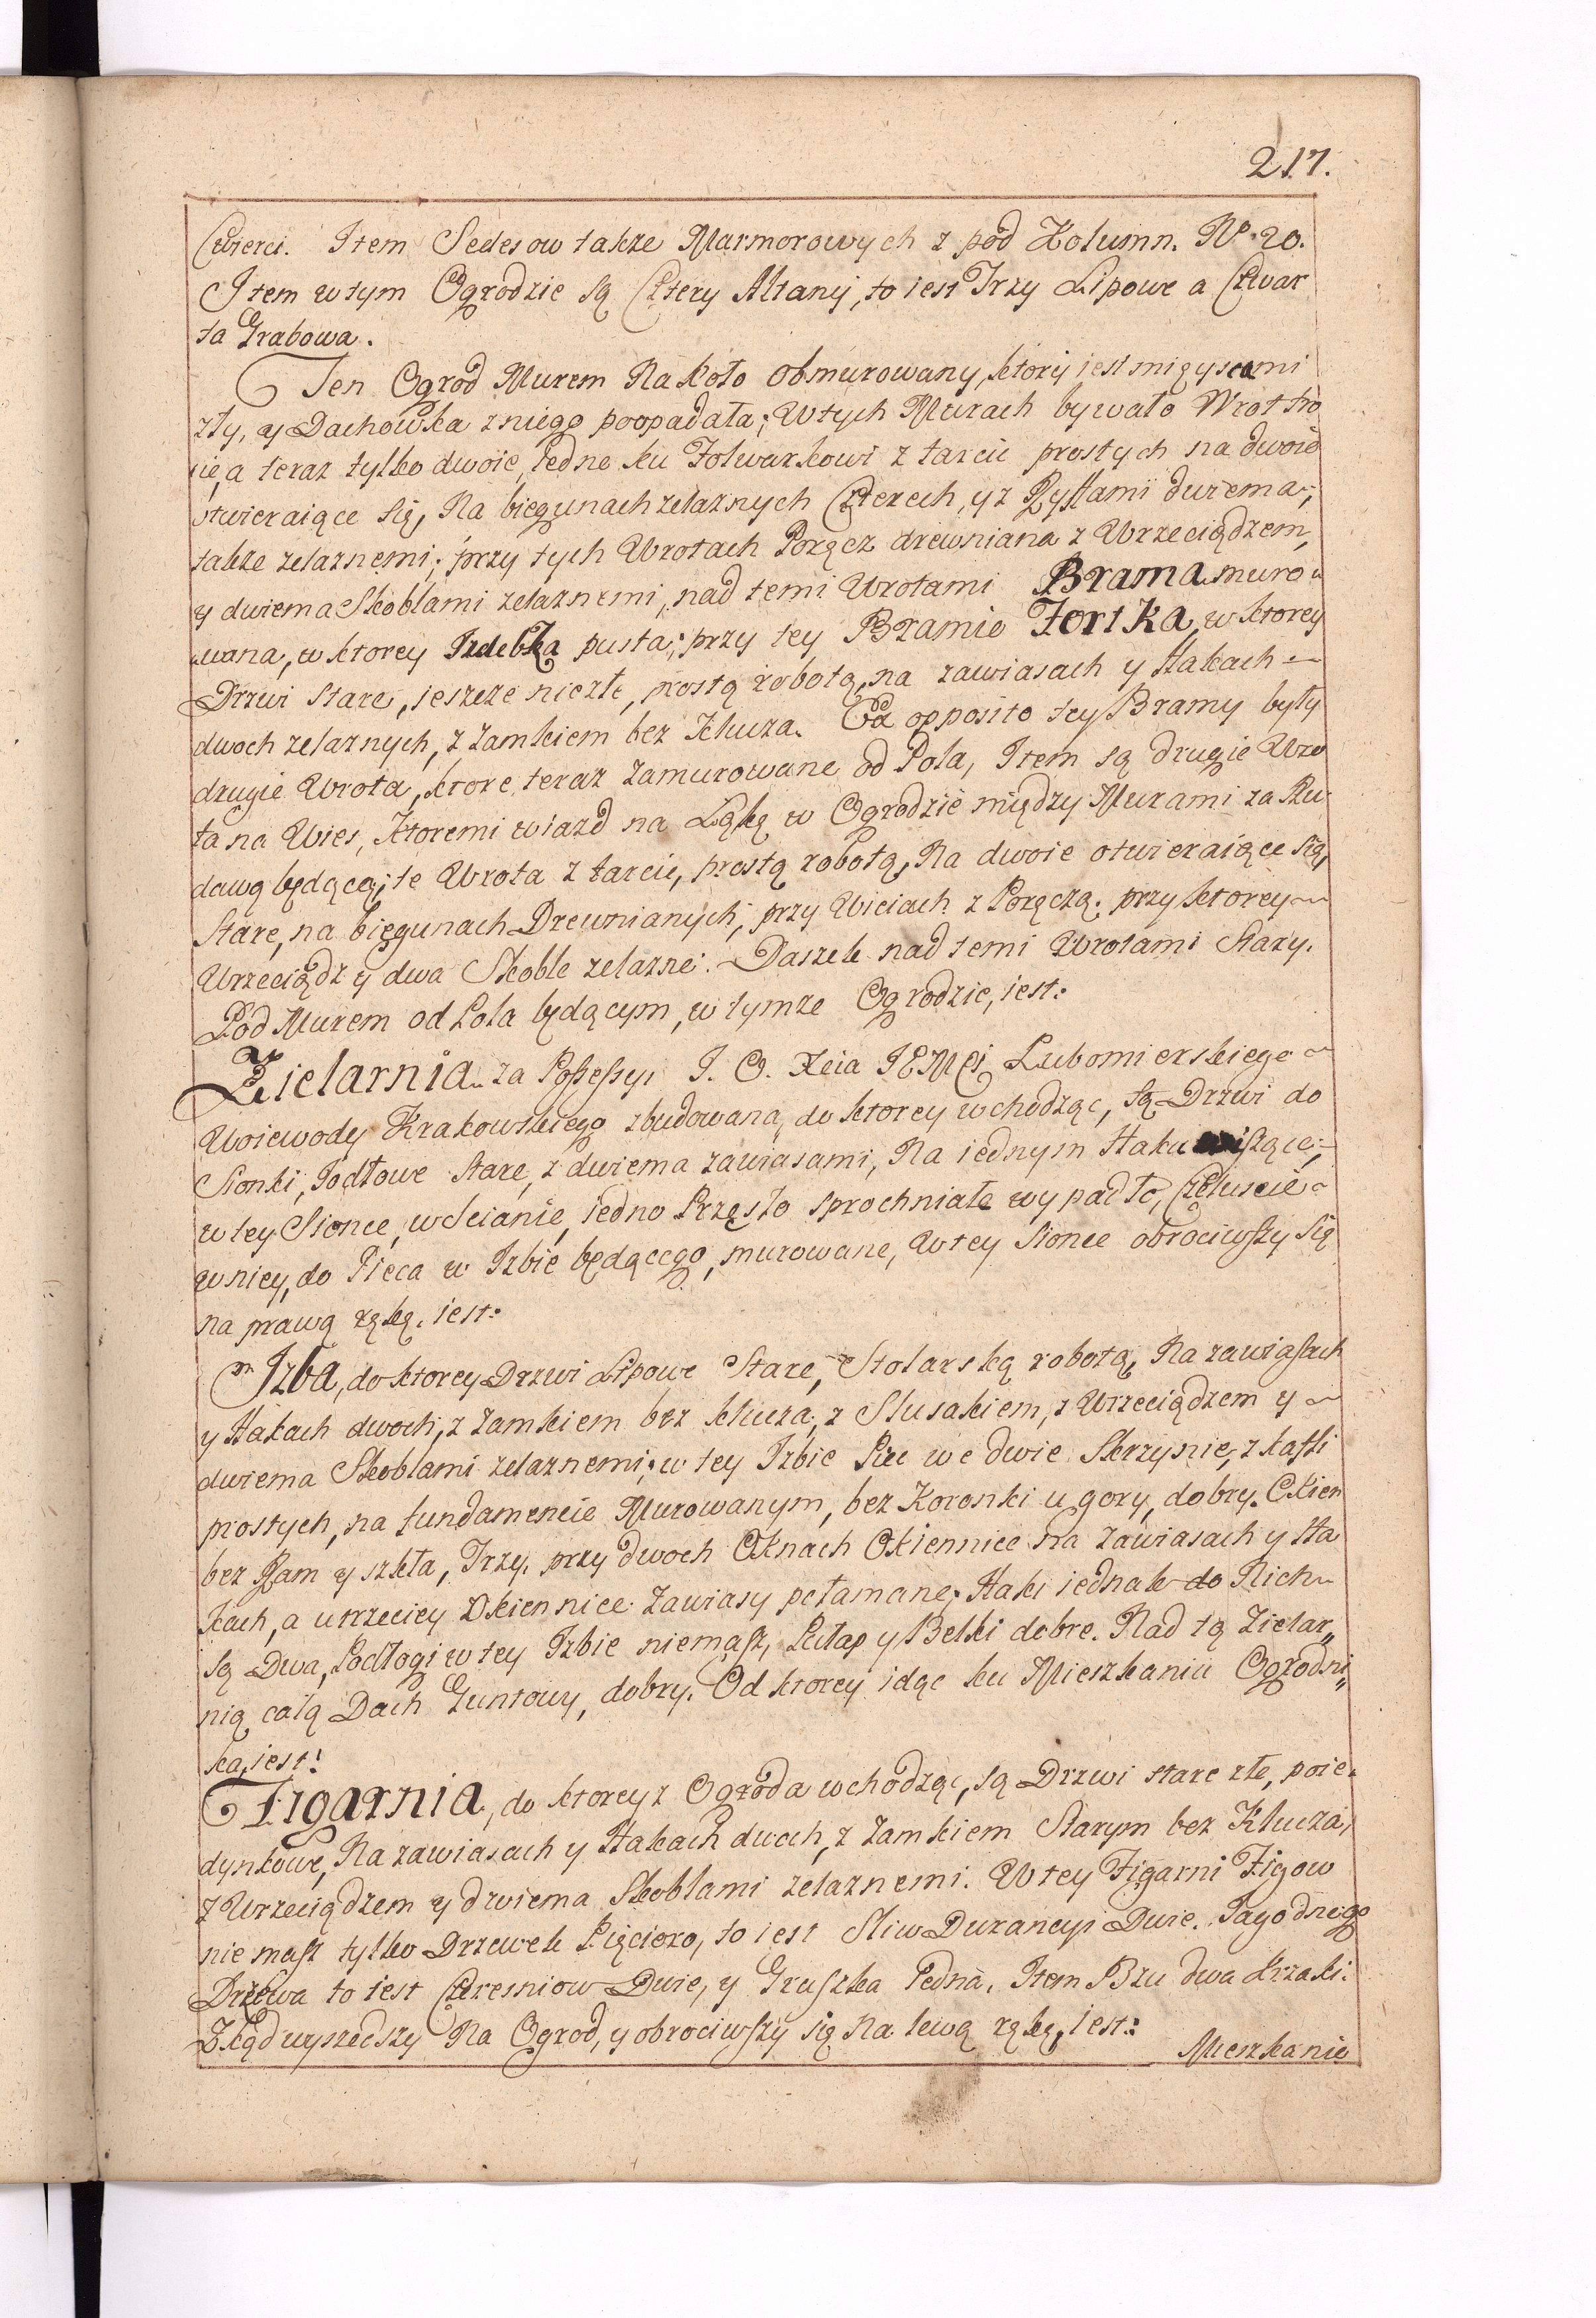 217.
Cwierci. Item Sedesow także Marmorowych z pod Kolumn. No. 20.
Item w tym Ogrodzie są Cztery Altany, to iest Trzy Lipowe a Czwar
ta Grabowa.
Ten Ogrod Murem Na koło obmurowany, ktory iest mieyscami
zły, y Dachowka z niego poopadała; W tych Murach bywało Wrot tro
ie, a teraz tylko dwoie, iedne ku Folwarkowi z tarcic prostych na dwoie
otwieraiące się, Na biegunach zelaznych Czterech, y z Ryfkami dwiema,
takze zelaznemi; przy tych Wrotach Poręcz drewniana z Wrzeciądzem,
y dwiema Skoblami zelaznemi, nad temi Wrotami Brama muro„
„wana, w ktorey Izdebka pusta; przy tey Bramie Fortka, w ktorey
Drzwi Stare, ieszcze niezłe, prostą robotą, na zawiasach y Hakach
dwoch zelaznych, z Zamkiem bez Klucza. Ex opposito tey Bramy były
drugie Wrota, ktore teraz Zamurowane od Pola, Item są drugie Wro
ta na Wies, ktoremi wiazd na Łąkę w Ogrodzie między Murami za Ru
dawą będącą; te Wrota z tarcic, prostą robotą, Na dwoie otwieraiące się,
Stare, na biegunach Drewnianych, przy Wiciach z Poręczą, przy ktorey
Wrzeciądz y dwa Skoble zelazne. Daszek nad temi Wrotami Stary.
Pod Murem od Pola będącym, w tymze Ogrodzie, iest:
Zielarnia za Possessyi J. O. Xcia JEMCi Lubomierskiego
Woiewody Krakowskiego zbudowana, do ktorey wchodząc, są Drzwi do
Sionki, Jodłowe Stare, z dwiema zawiasami, Na iednym Haku wiszące,
w tey Sionce, w Scianie, iedno Przęsło sprochniałe wypadło, Czeluscie
w niey, do Pieca w Izbie będącego, murowane, W tey Sionce obrociwszy się
na prawą rękę, iest:
Izba, do ktorey Drzwi Lipowe Stare, Stolarską robotą, Na zawiasach
y Hakach dwoch, z Zamkiem bez klucza, z Slusakiem, z Wrzeciądzem y
dwiema Skoblami zelaznemi; w tey Izbie Piec we dwie Skrzynie, z kafli
prostych, na fundamencie Murowanym, bez Koronki u gory, dobry. Okien
bez Ram y szkła, Trzy, przy dwoch Oknach Okiennice na Zawiasach y Ha
kach, a u trzeciey Okiennice Zawiasy połamane, Haki iednak do Nich
są Dwa, Podłogi w tey Izbie niemasz, Pułap y Belki dobre. Nad tą Zielar„
nią całą Dach Guntowy, dobry. Od ktorey idąc ku Mieszkaniu Ogrodni„
ka, iest:
Figarnia, do ktorey z Ogroda wchodząc, są Drzwi stare złe, poie„
dynkowe, Na zawiasach y Hakach dwoch, z Zamkiem Starym bez Klucza,
z Wrzeciądzem y dwiema Skoblami zelaznemi. W tey Figarni Figow
nie masz tylko Drzewek Pięcioro, to iest Sliw Durancyi Dwie. Jagodnego
Drzewa to iest Czeresniow Dwie, y Gruszka Jedna, Item Bzu dwa Krzaki.
Ztąd wyszedszy Na Ogrod, y obrociwszy się Na lewą rękę, iest:
Mieszkanie